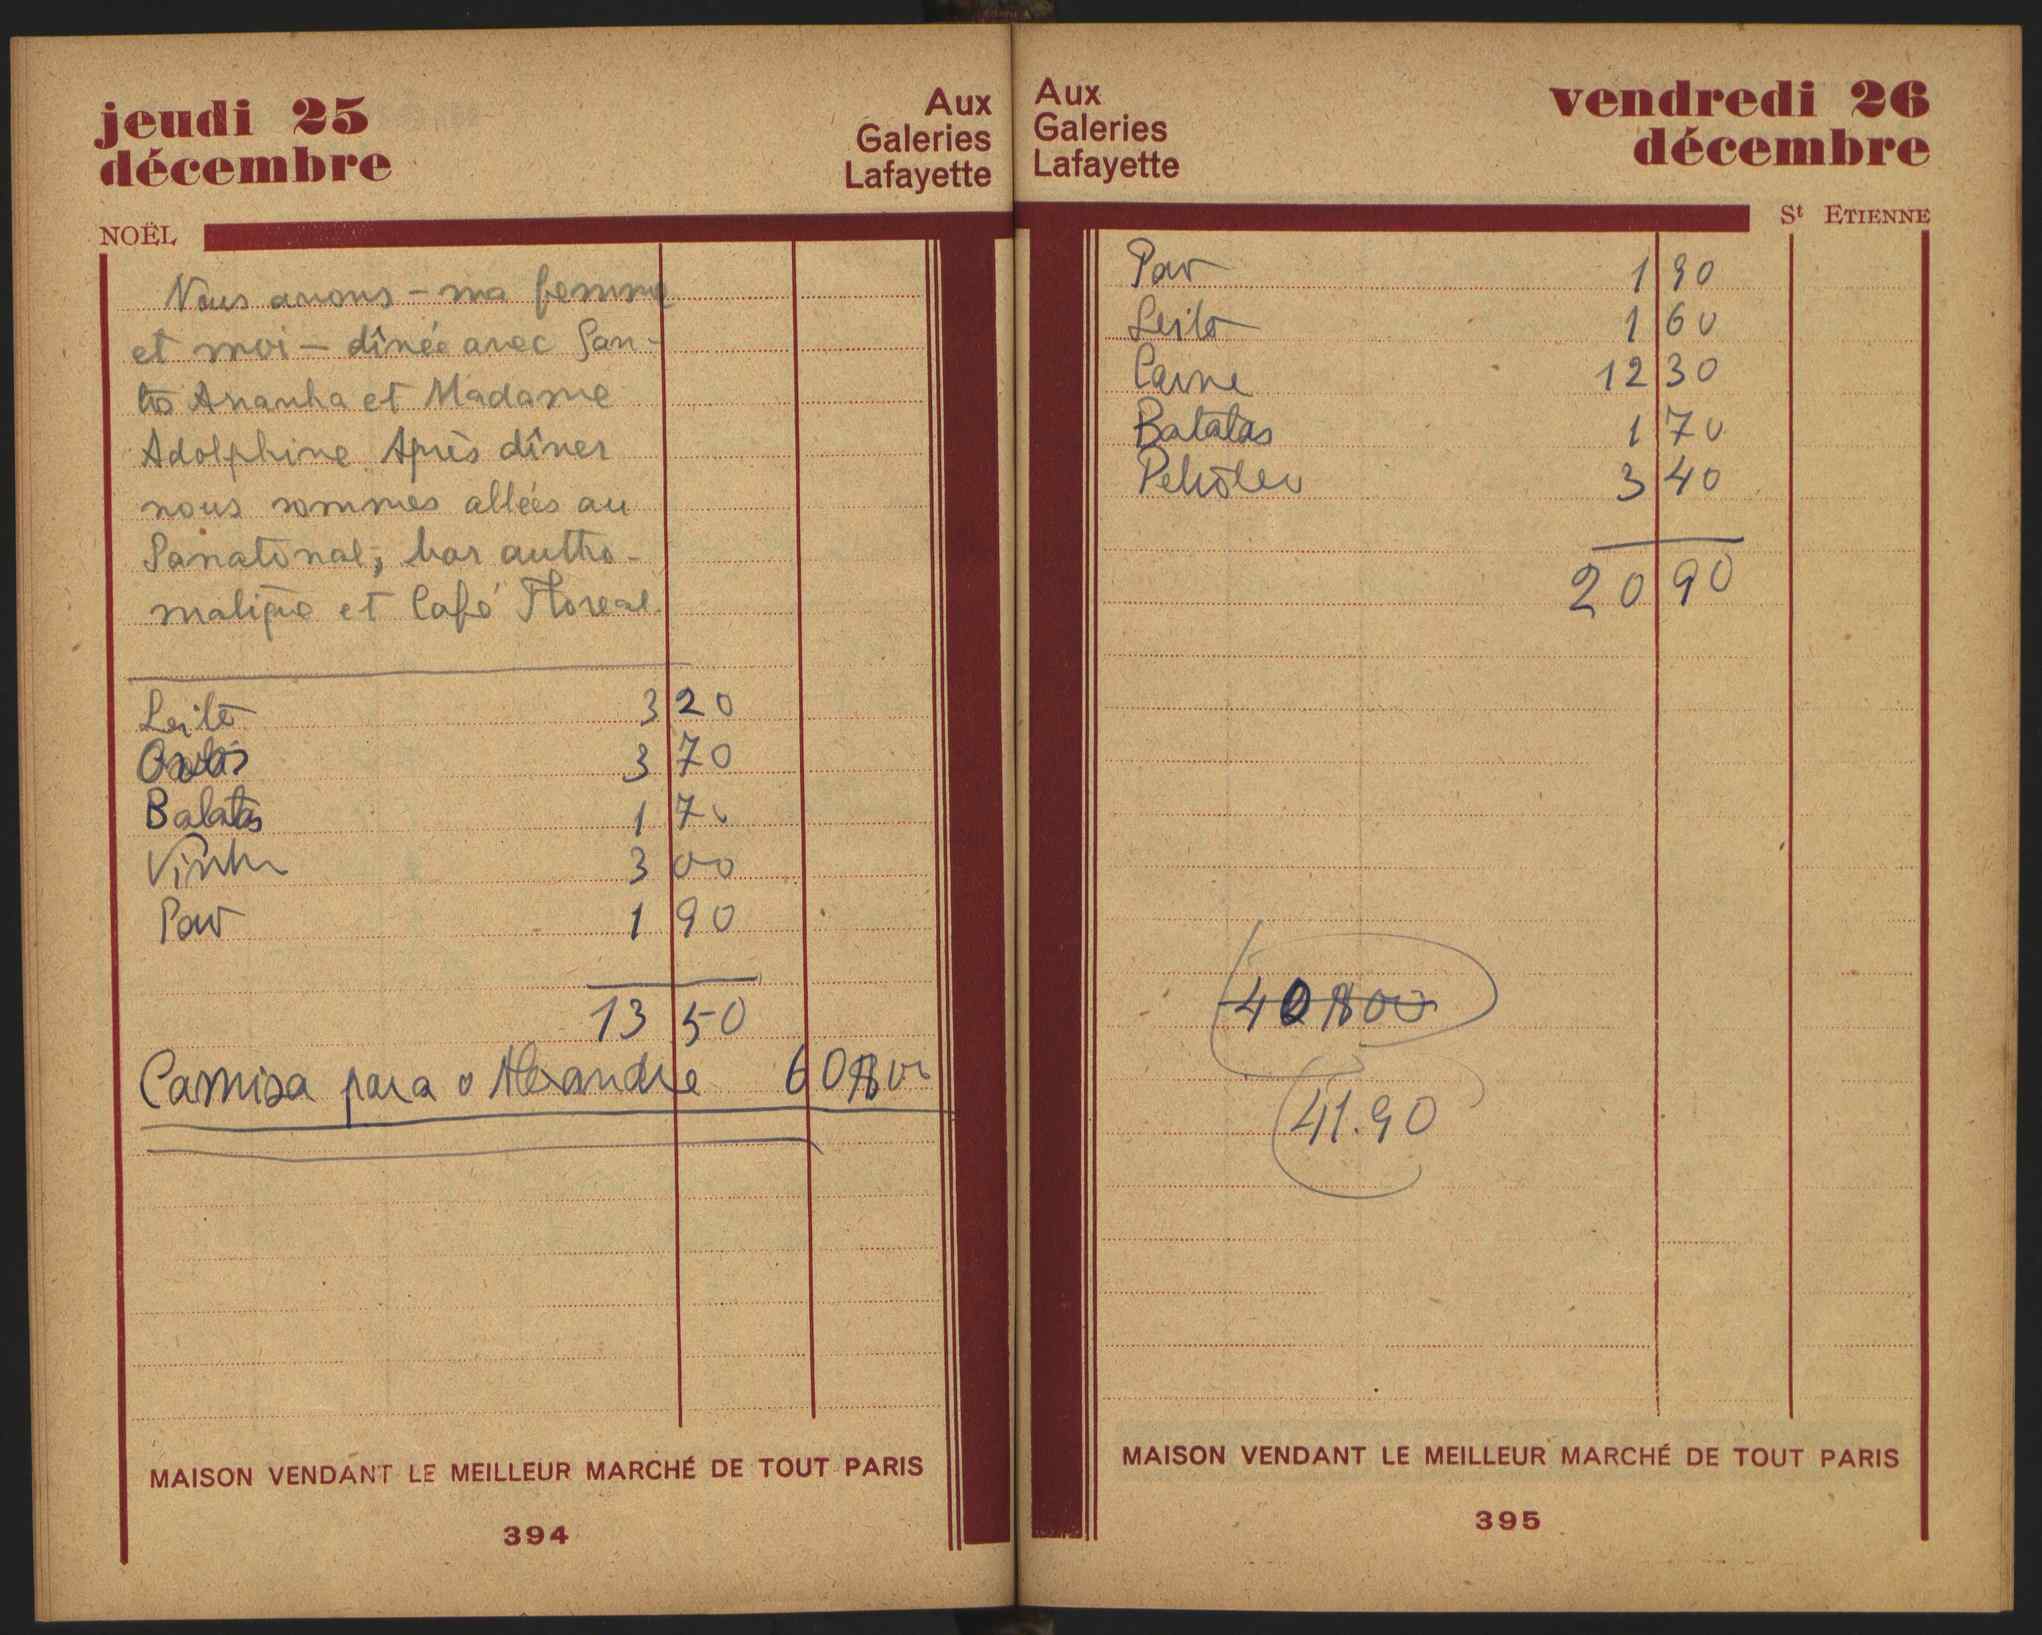 jeudi 25
décembre
Aux
Galeries
Lafayette
NOËL
Nous avons - ma femme
et moi - dînée avec San-
tos Aranha et Madame
Adolphine. Après dîner
nous sommes allées au
bar autto-
matique et Café Floreal
Leite 3 20
3 70
Batatas 1 70
Vinho 3 00
Pão 1 90
13 50
Camisa para o Alexandre 60$00
MAISON VENDANT LE MEILLEUR MARCHÉ DE TOUT PARIS
394
Aux
Galeries
Lafayette
vendredi 26
décembre
St ETIENNE
Pão 1 90
Leite 1 60
Carne 12 30
Batatas 1 70
Petróleo 3 40
20 90
40$00
41.90
MAISON VENDANT LE MEILLEUR MARCHÉ DE TOUT PARIS
395